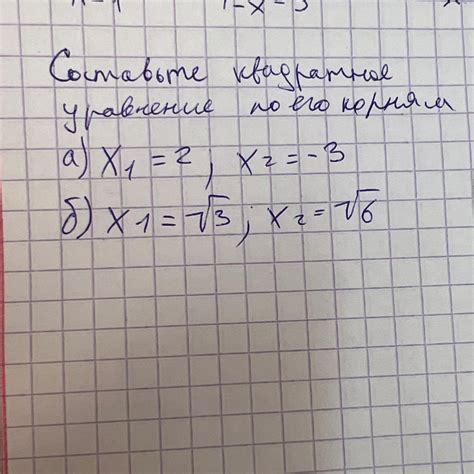 Составьте квадратное
уравнение по его корням
а) x₁ = 2; x₂ = -3
б) x₁ = √3; x₂ = √6